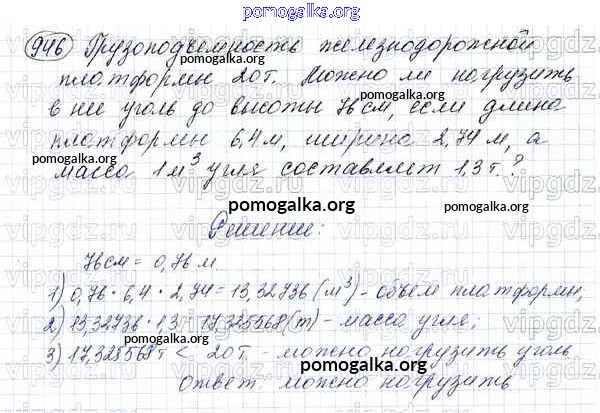 pomogalka.org
946 Грузоподъемность железнодорожной
платформы 20т. Можно ли нагрузить
в нее уголь до высоты 76см, если длина
платформы 6,4м, ширина 2,74 м, а
масса 1м³ угля составляет 1,3т.?
pomogalka.org
Решение:
76см = 0,76м.
1) 0,76 · 6,4 · 2,74 = 13,32736 (м³) - объем платформы;
2) 13,32736 · 1,3 = 17,325568 (т) - масса угля;
3) 17,325568т < 20т. - можно нагрузить уголь
Ответ: можно нагрузить.
pomogalka.org